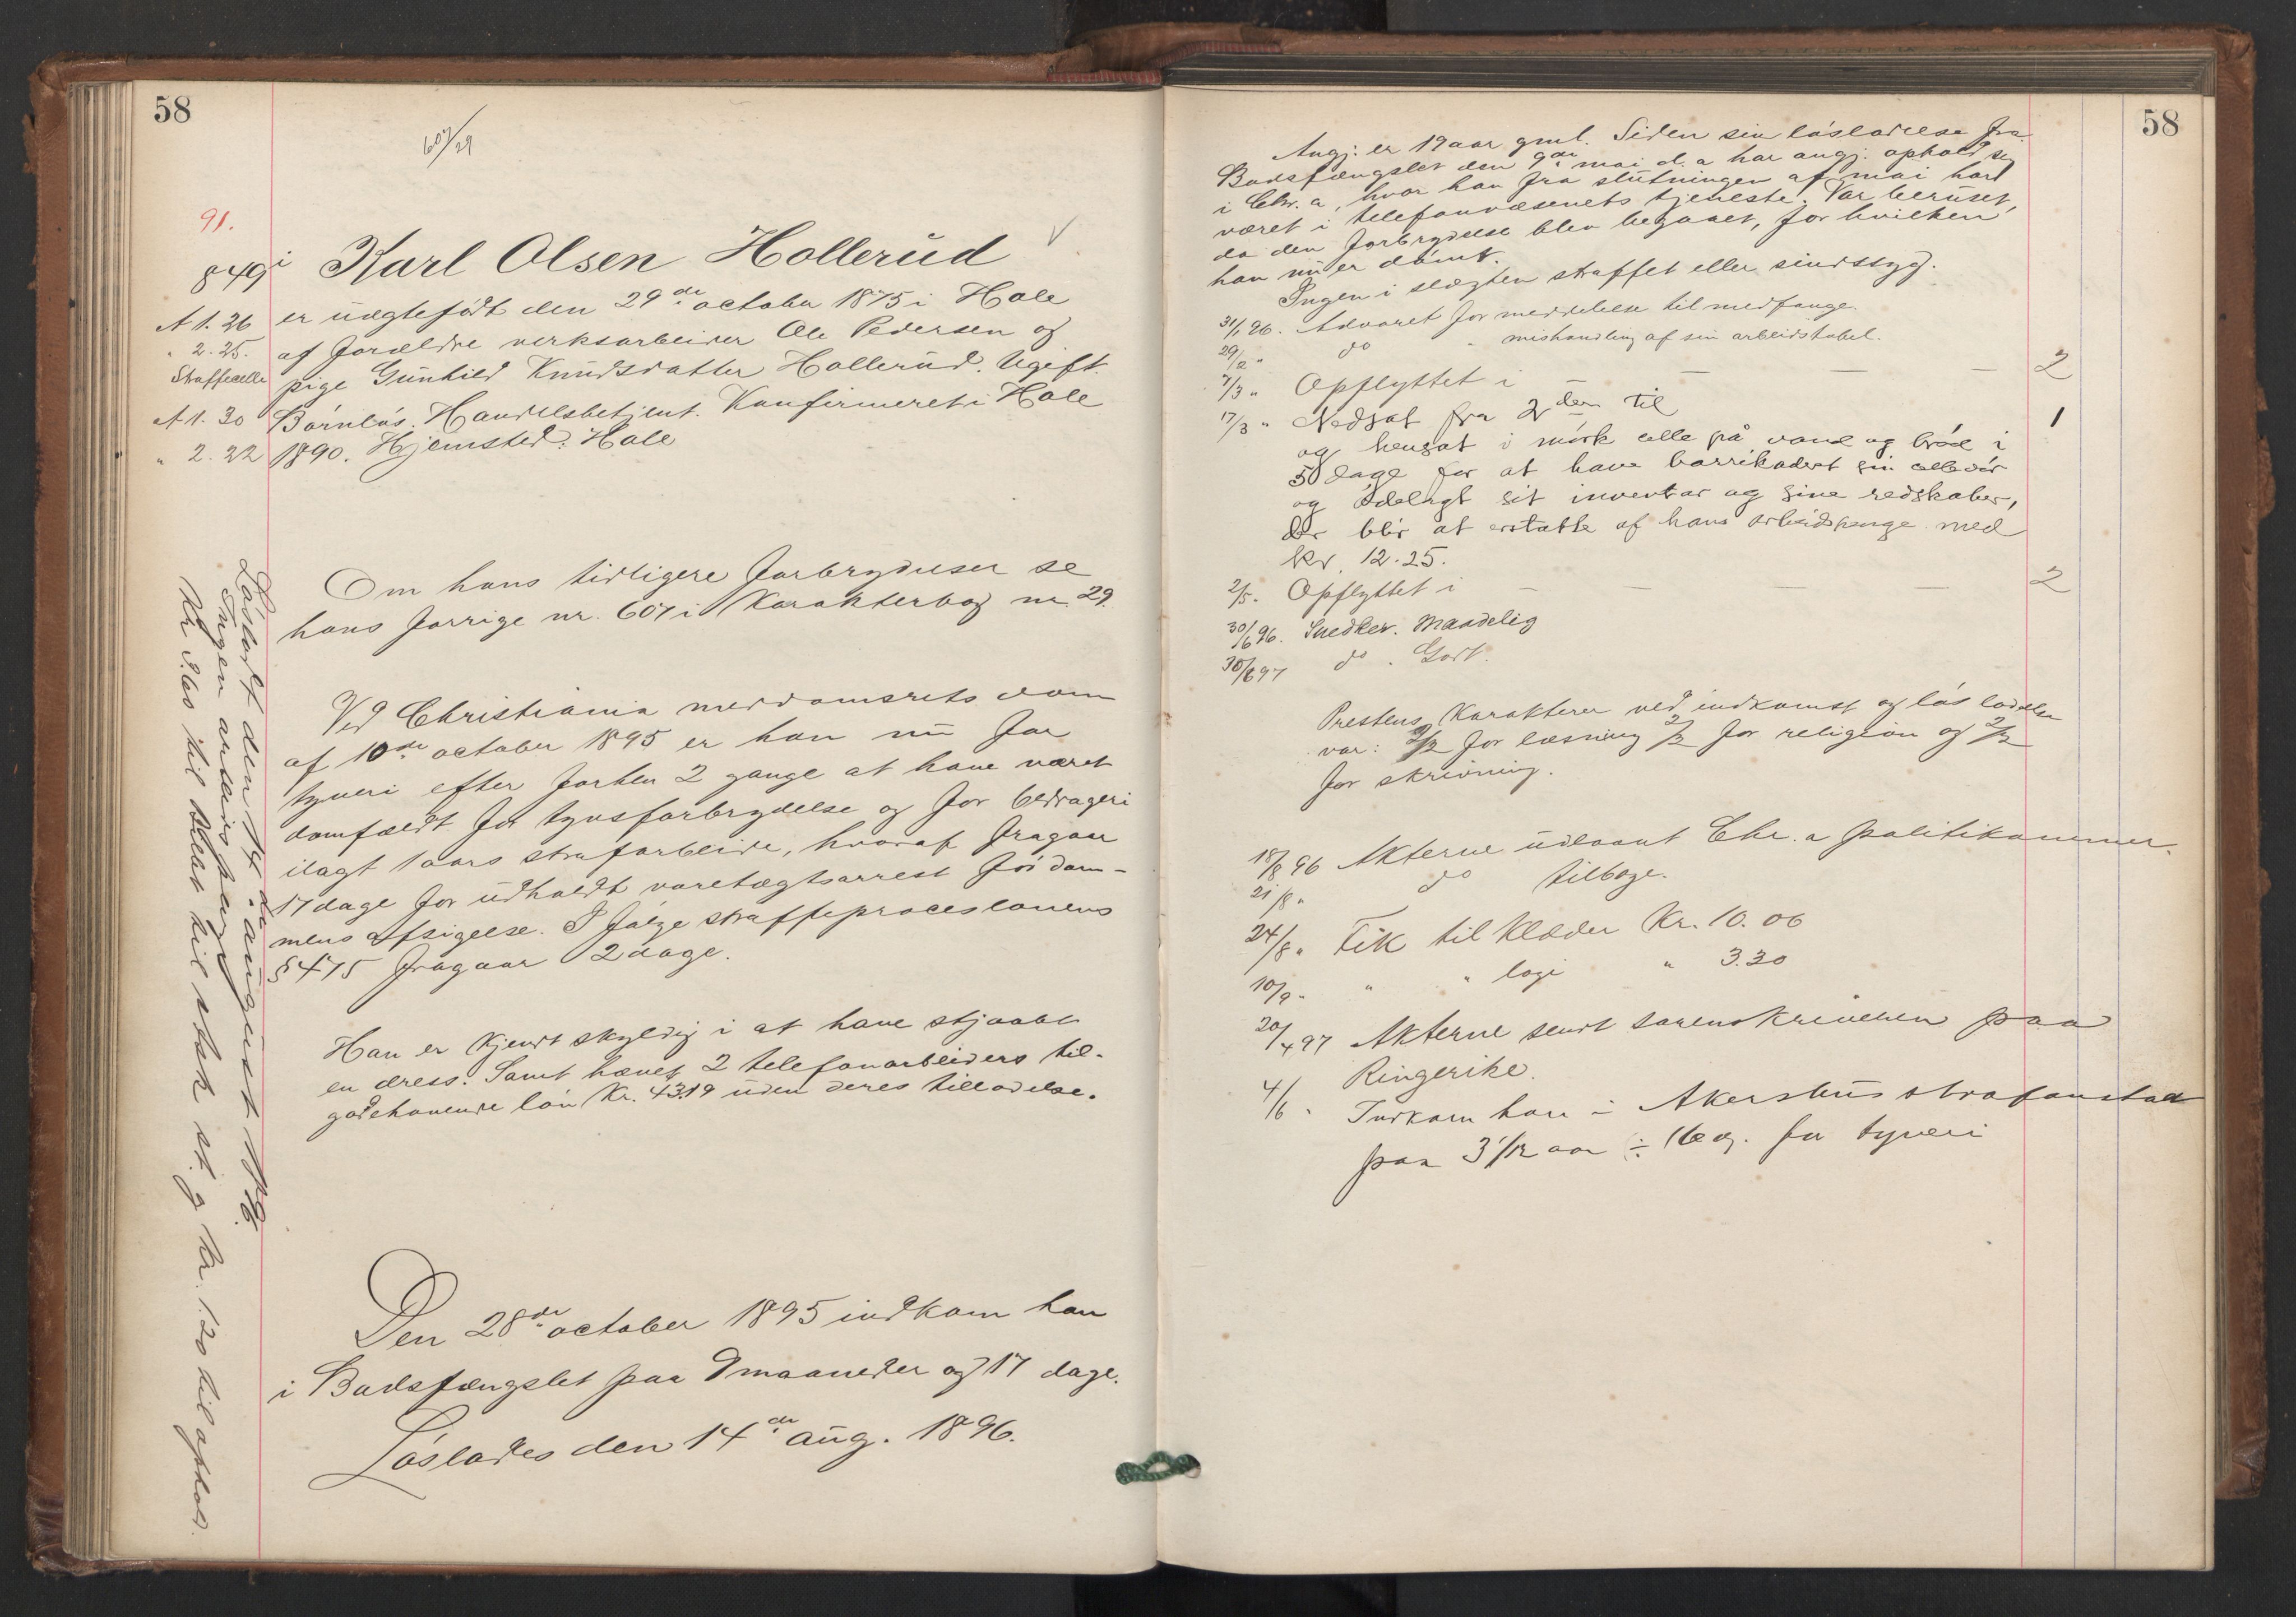 58
607/29
91.
849 i Karl Olsen Hollerud
A 1. 26
" 2. 25.
Straffecelle
A 1. 30
" 2. 22
er uægtefødt den 29de october 1875 i Hole
af forældre verksarbeider Ole Pedersen og
pige Gunhild Knudsdatter Hollerud. Ugift.
Barnløs. Handelsbetjent. Konfirmeret i Hole
1890. Hjemsted: Hole
Om hans tidligere forbrydelser se
hans forrige nr. 607 i Karakterbog nr. 29.
Ved Christiania meddomsrets dom
af 10de october 1895 er han nu for
tyveri efter forhen 2 gange at have været
domfældt for tyvsforbrydelse og for bedrageri
ilagt 1 aars strafarbeide, hvoraf fragaar
17 dage for udholdt varetægtsarrest før dom-
mens afsigelse. I følge straffeproceslovens
§ 475 fragaar 2 dage.
Han er kjendt skyldig i at have stjaalet
en dress. Samt hævet 2 telefonarbeiders til-
godehavende løn Kr. 43.19 uden deres tilladelse.
Den 28de october 1895 indkom han
i Bodsfængslet paa 9 maaneder og 17 dage.
Løslades den 14de aug. 1896.
Løsladt den 14de august 1896.
Ingen arbeidspenge
Kr 3.60 til billet til st. og kr. 1.20 til ophold.
58
Angj. er 19 aar gml. Siden sin løsladelse fra
Bodsfængslet den 9de mai d. a. har angj. opholdt sig
i Chr.a, hvor han fra slutningen af mai har
været i telefonvæsenets tjeneste. Var beruset,
da den forbrydelse blev begaaet, for hvilken
han nu er dømt.
Ingen i slægten straffet eller sindssyg.
31/1 96. Advaret for meddelelse til medfange.
29/2 " do " mishandling af sin arbeidstabel.
7/3 " Opflyttet i — — — 2
17/3 " Nedsat fra 2den til 1
og hensat i mørk celle på vand og brød i
5 dage for at have barrikadert sin celledør
og ødelagt sit inventar og sine redskaber,
der blir at erstatte af hans arbeidspenge med
kr. 12.25.
2/5. Opflyttet i — — — 2
30/6 96. Snedker. Maadelig
30/6 97 do. Godt.
Prestens Karakterer ved indkomst og løsladelse
var: 2/2 for læsning 2/2 for religion og 2/2
for skrivning.
18/8 96 Akterne udlaant Chr.a politikammer.
21/8 " do tilbage.
24/8 " Fik til Klæder Kr. 10.06
10/9 " " " logi " 3.30
20/4 97 Akterne sendt sorenskriveren paa
Ringerike.
4/6 " Indkom han i Akershus strafanstalt
paa 3 1/12 aar ÷ 16 dg. for tyveri